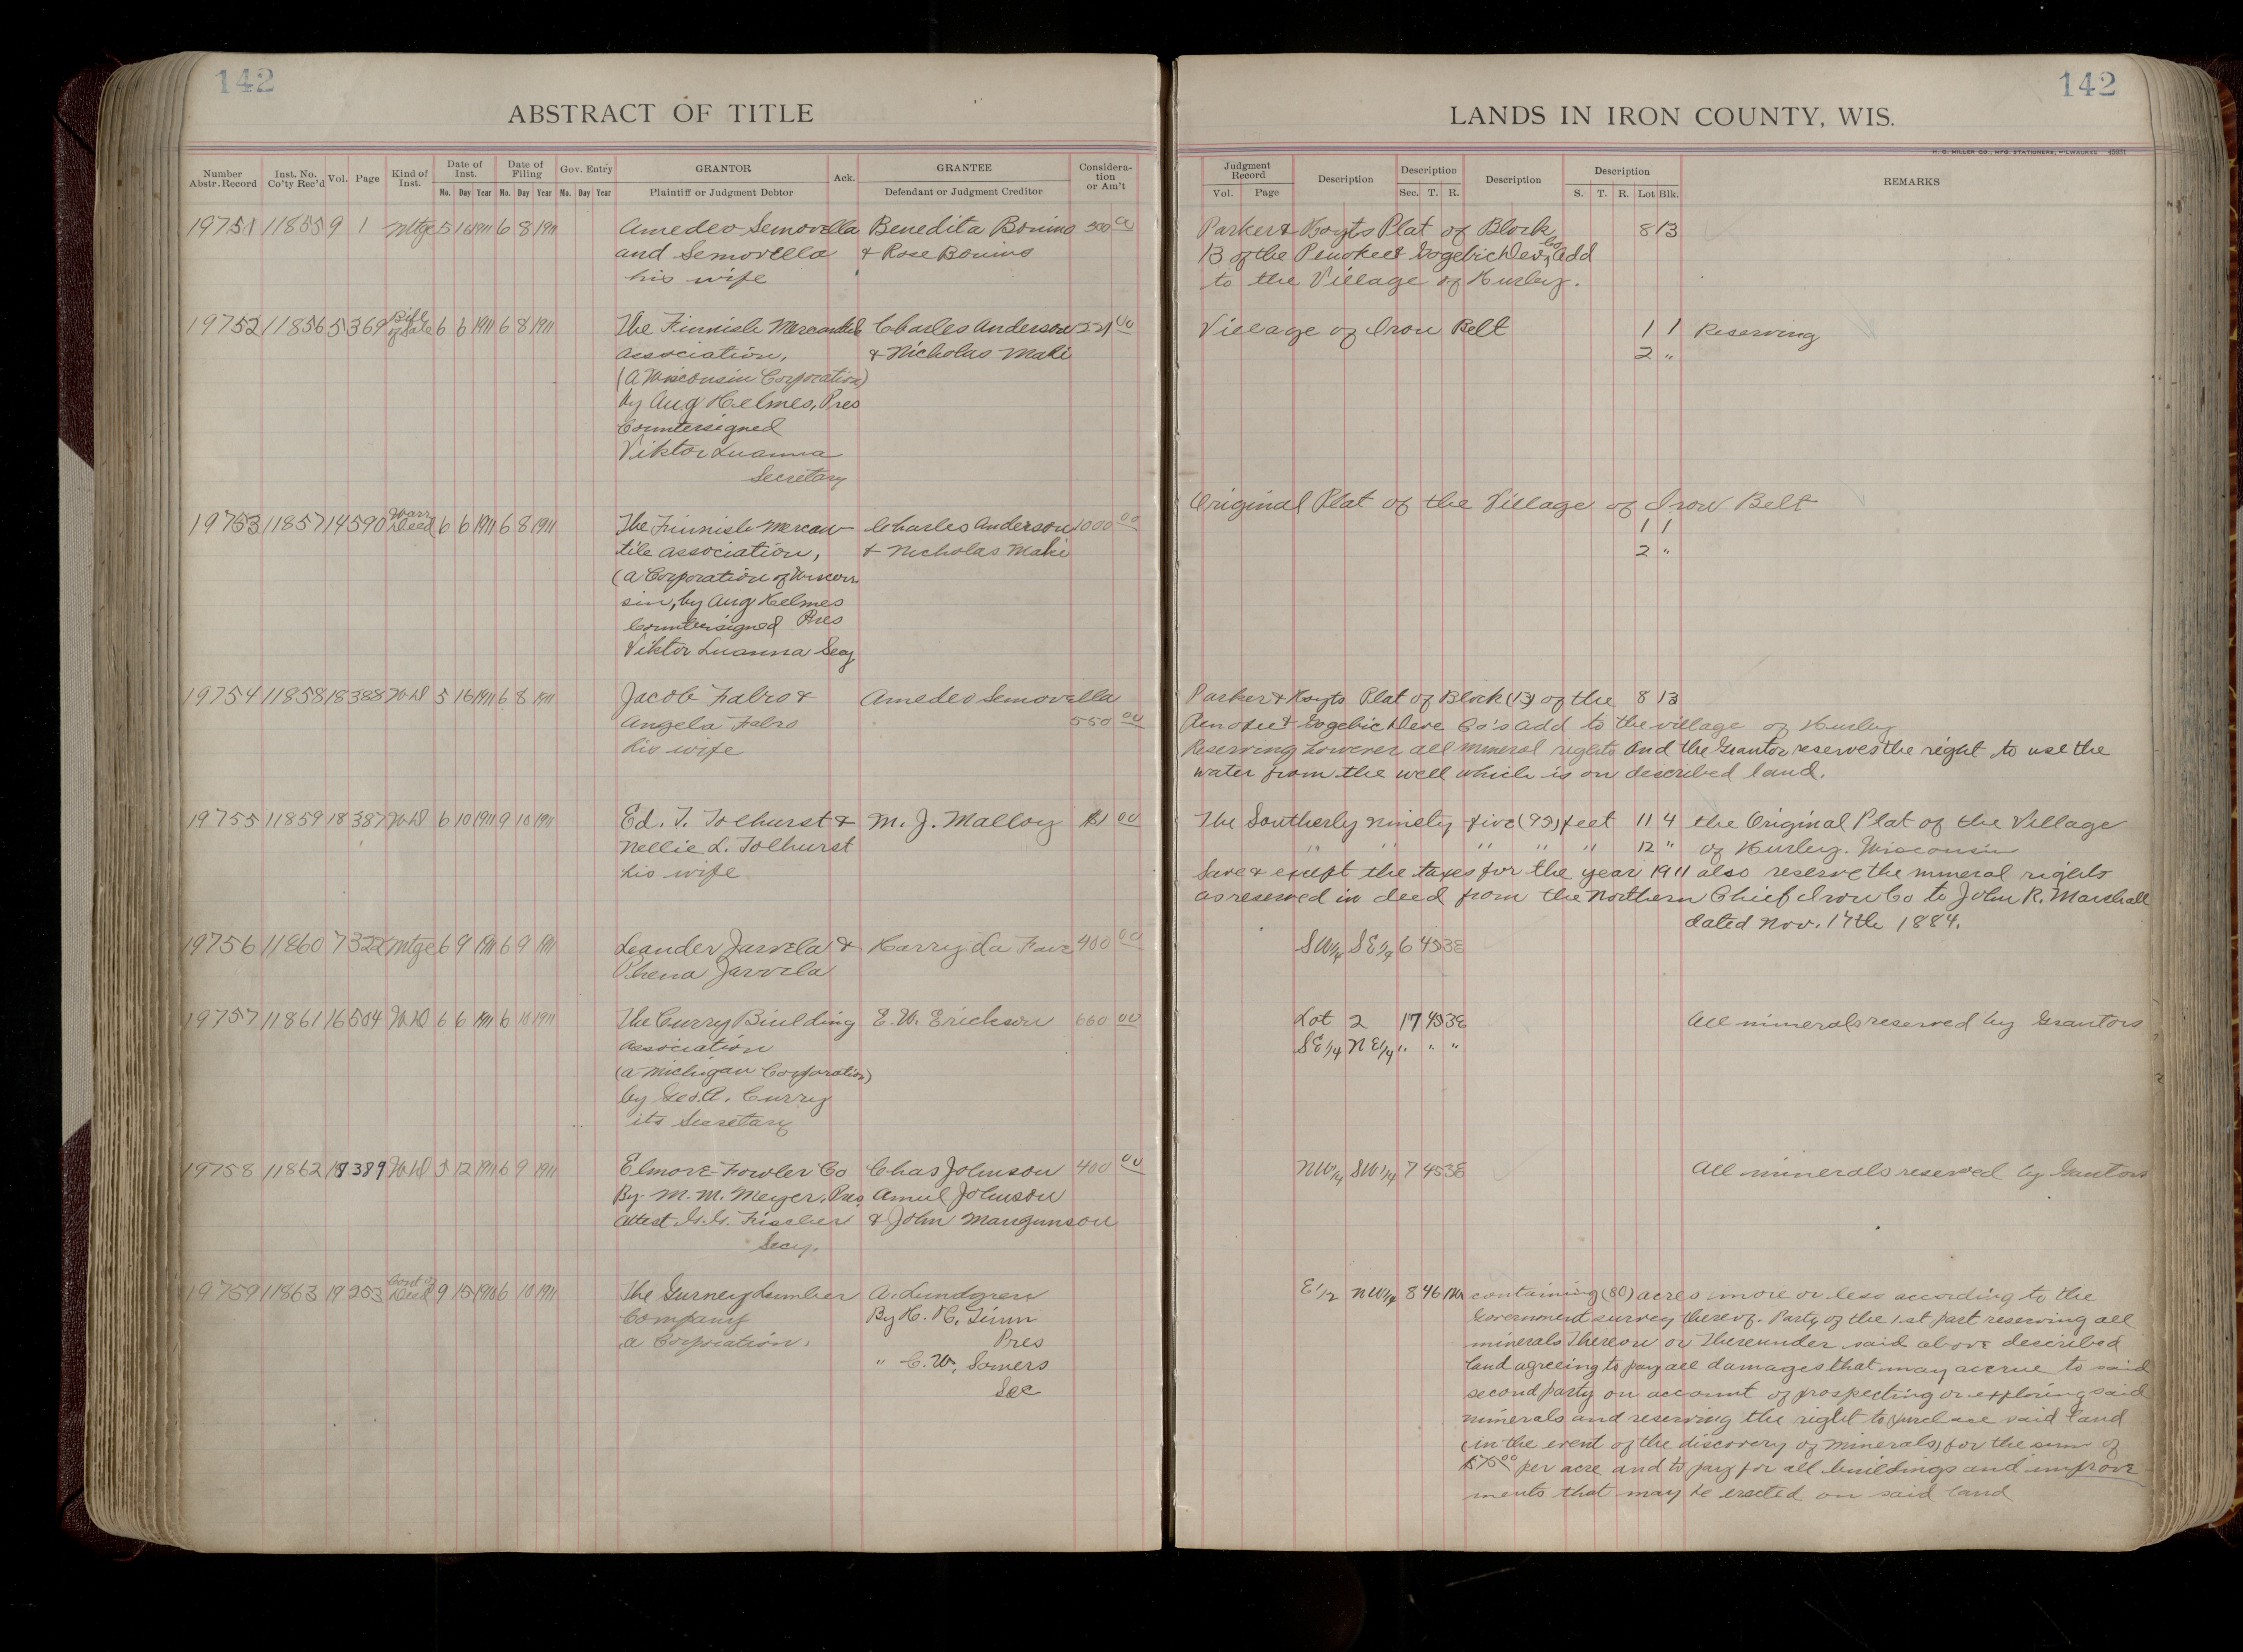 142
ABSTRACT OF TITLE
Number Abstr. Record Inst. No. Co'ty Rec'd Vol. Page Kind of Inst. Date of Inst. Date of Filing Gov. Entry GRANTOR Ack. GRANTEE Considera-tion or Am't
No. Day Year No. Day Year No. Day Year Plaintiff or Judgment Debtor Defendant or Judgment Creditor
19751 11855 9 1 Mtge 5 16 1911 6 8 1911 Amedeo Semovella Benedita Bonino 500 00
and Semovella & Rose Bonino
his wife
19752 11856 5 369 Bill of Sale 6 6 1911 6 8 1911 The Finnish Mercantile Charles Anderson 221 00
Association, & Nicholas Maki
(A Wisconsin Corporation)
by Aug Helmes, Pres
Countersigned
Viktor Luanna
Secretary
19753 11857 14 590 Warr Deed 6 6 1911 6 8 1911 The Finnish Mercan- Charles Anderson 1000 00
tile Association, & Nicholas Maki
(a Corporation of Wiscon
sin, by Aug Helmes
Countersigned Pres
Viktor Luanna Secy
19754 11858 18 388 W D 5 16 1911 6 8 1911 Jacob Fabro & Amedeo Semovella
Angela Fabro 550 00
his wife
19755 11859 18 387 W D 6 10 1911 9 10 1911 Ed. T. Tolhurst & M. J. Malloy $1 00
Nellie L. Tolhurst
his wife
19756 11860 7 322 Mtge 6 9 1911 6 9 1911 Leander Jarvela & Harry La Fave 400 00
Phena Jarvela
19757 11861 16 504 W D 6 6 1911 6 10 1911 The Curry Building E. W. Erickson 660 00
Association
(a Michigan Corporation)
by Geo. A. Curry
its Secretary
19758 11862 18 389 W D 5 12 1911 6 9 1911 Elmore Fowler Co Chas Johnson 400 00
By M. M. Meyer, Pres Amul Johnson
Attest G. G. Fischer & John Mangunson
Secy.
19759 11863 19 253 Cont of Deed 9 15 1910 6 10 1911 The Gurney Lumber A. Lundgren
Company By H. H.
a Corporation. Pres
" C. W. Somers
Sec
142
LANDS IN IRON COUNTY, WIS.
H. C. MILLER CO., MFG. STATIONERS, MILWAUKEE
Judgment Record Description Description Description Description REMARKS
Vol. Page Sec. T. R. S. T. R. Lot Blk.
Parker & Hoyts Plat of Block 8 13
13 of the Penokee & Gogebic Dev, Co Add
to the Village of Hurley.
Village of Iron Belt 1 1 Reserving
2 "
Original Plat of the Village of Iron Belt
1 1
2 "
Parker & Hoyts Plat of Block (13) of the 8 13
Penokee & Gogebic Deve Co's Add to the village of Hurley
Reserving however all mineral rights and the Grantor reserves the right to use the
water from the well which is on described land.
The Southerly ninety five (95) feet 11 4 the Original Plat of the Village
" " " " " 12 " of Hurley. Wisconsin
Save & exept the taxes for the year 1911 also reserve the mineral rights
as reserved in deed from the Northern Chief Iron Co to John R. Marshall
dated Nov. 17th 1884.
SW1/4 SE1/4 6 45 3E
Lot 2 17 45 3E All minerals reserved by Grantors
SE1/4 NE1/4 " " "
NW1/4 SW1/4 7 45 3E All minerals reserved by Grantors
E1/2 NW1/4 8 46 1W containing (80) acres more or less according to the
Government survey thereof. Party of the 1st part reserving all
minerals thereon or thereunder said above described
land agreeing to pay all damages that may accrue to said
second party on account of prospecting or exploring said
minerals and reserving the right to purchase said land
(in the event of the discovery of minerals) for the sum of
$75.00 per acre and to pay for all buildings and improve
ments that may be erected on said land